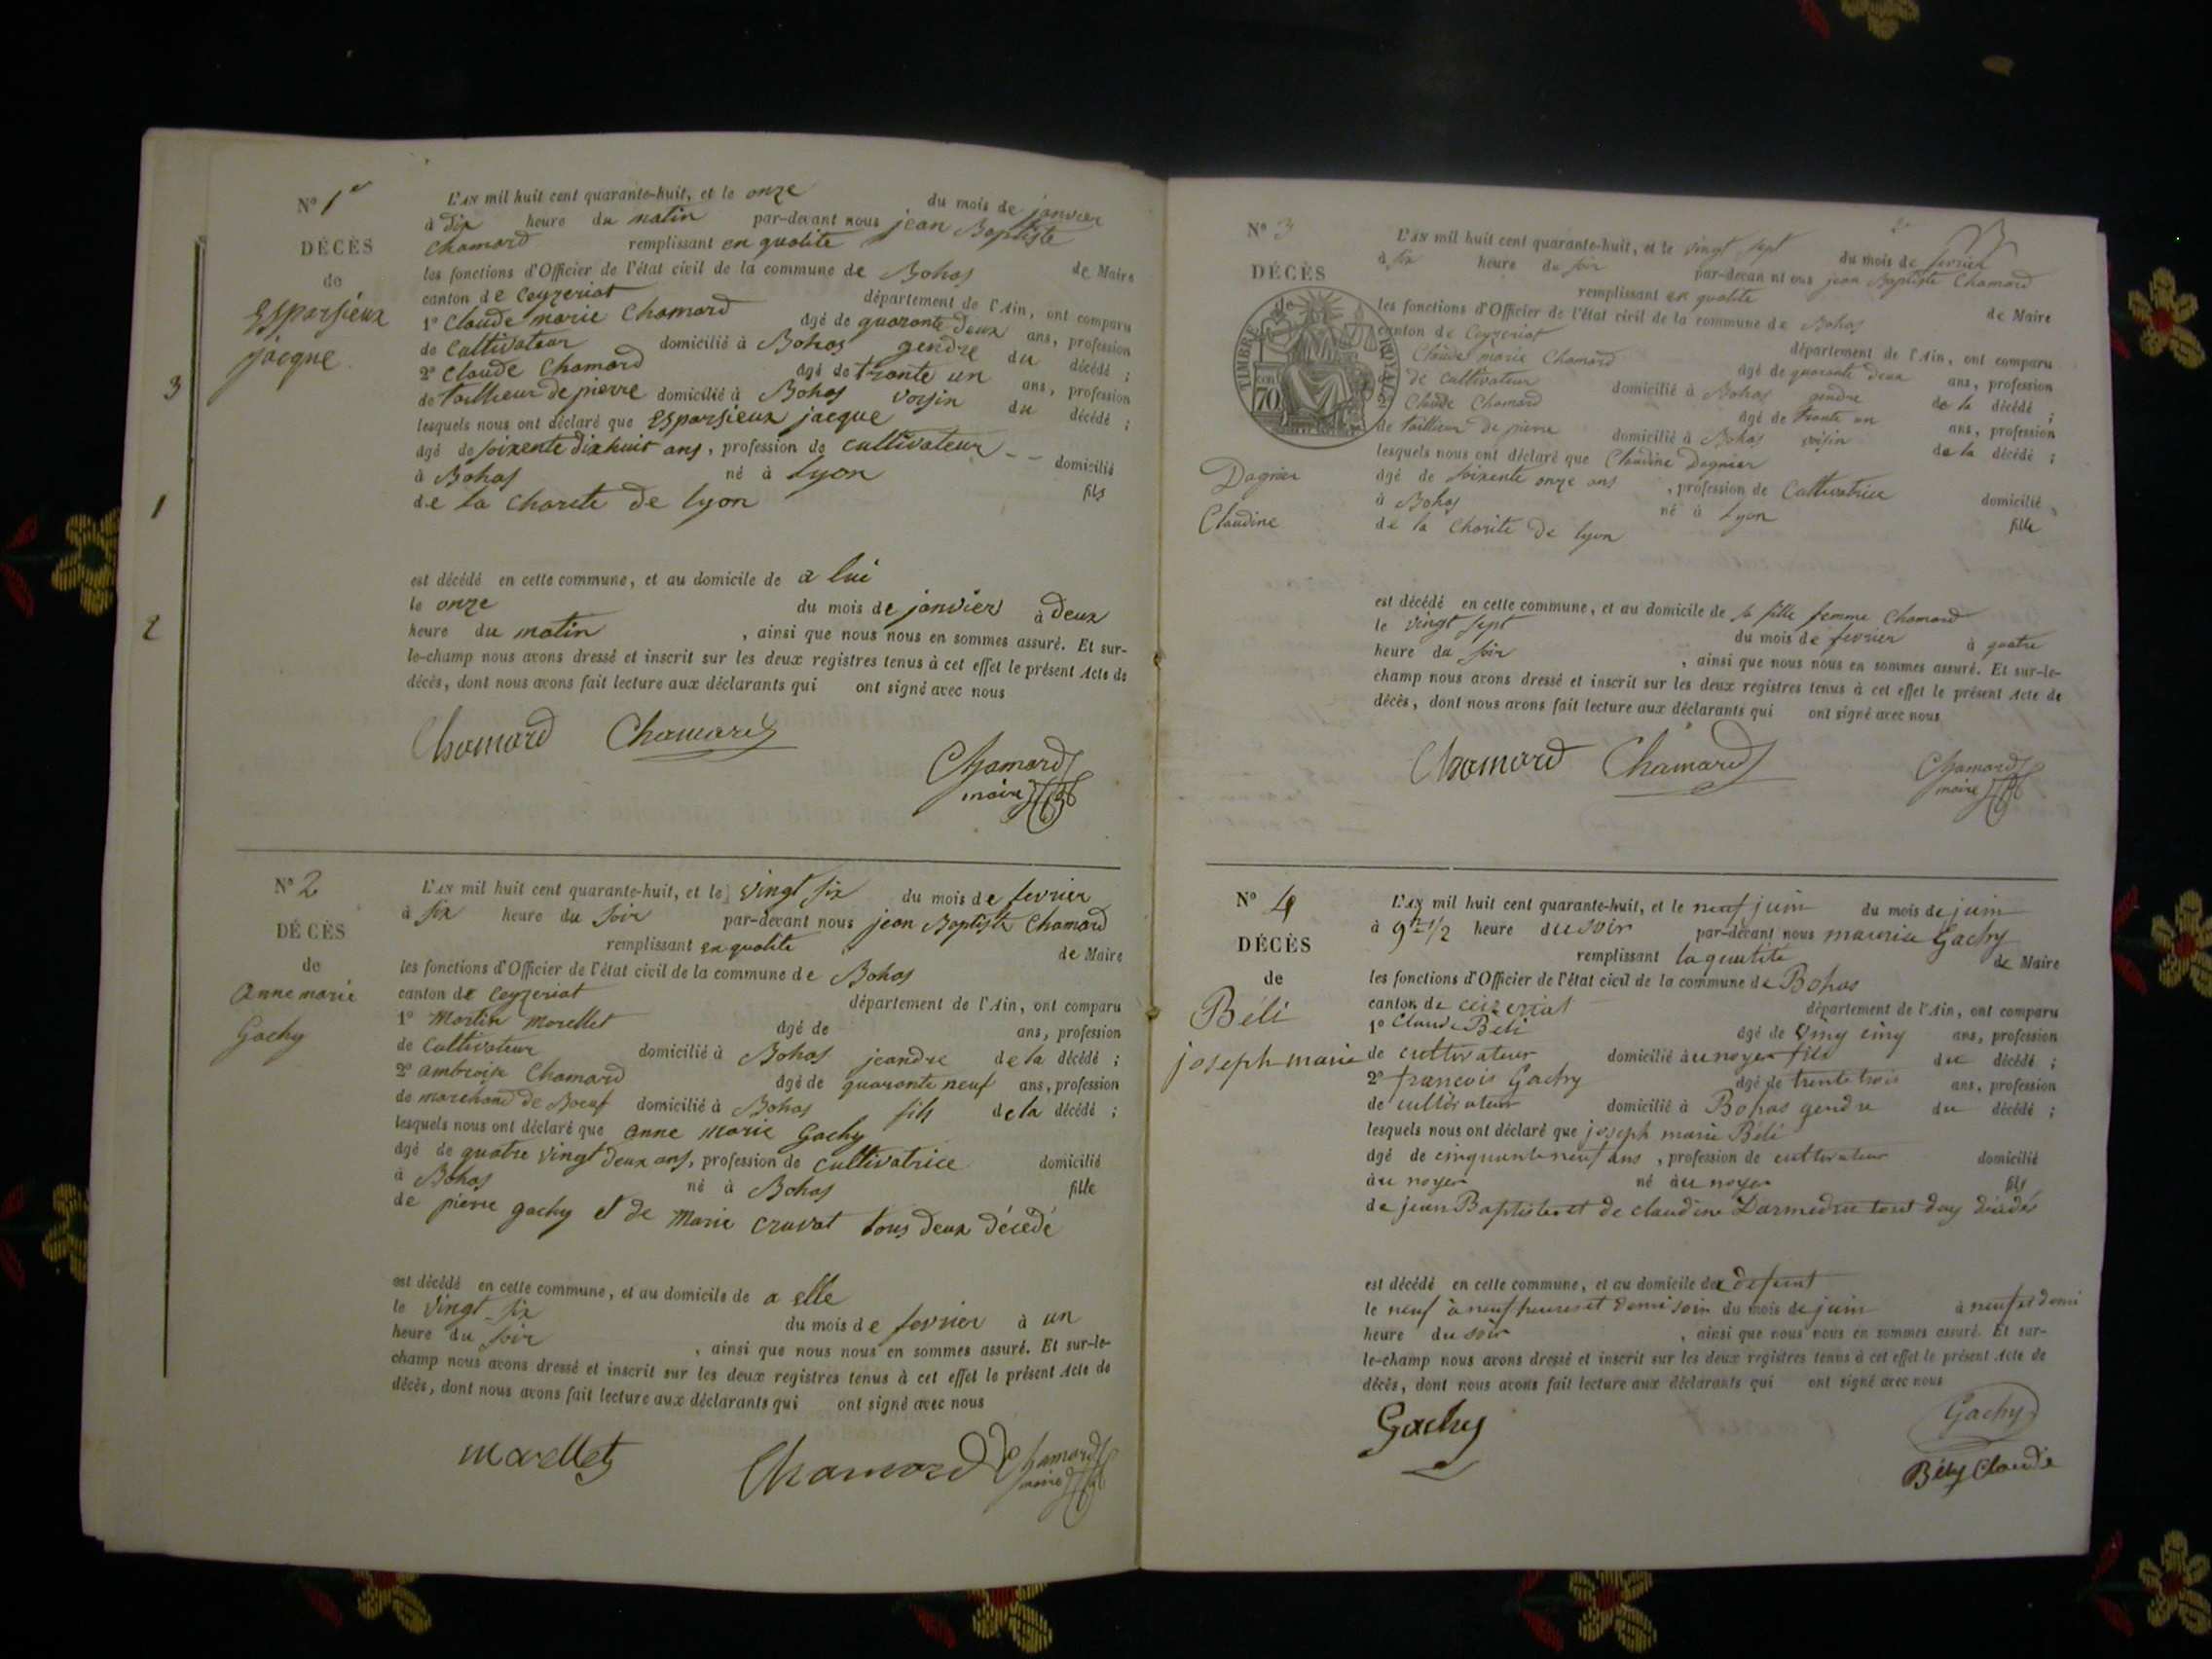 3
1
2
N° 1er
DÉCÈS
de
Esparsieux
jacque
L'AN mil huit cent quarante-huit, et le onze du mois de janvier
à dix heure du matin par-devant nous jean Baptiste
Chamard remplissant en qualite de Maire
les fonctions d'Officier de l'état civil de la commune de Bohas
canton de Ceyzeriat département de l'Ain, ont comparu
1° Claude marie Chamard âgé de quarante deux ans, profession
de Cultivateur domicilié à Bohas gendre du décédé ;
2° Claude Chamard âgé de trante un ans, profession
de taillieur de pierre domicilié à Bohas voisin du décédé ;
lesquels nous ont déclaré que Esparsieux jacque
âgé de soixente dix huit ans, profession de cultivateur -- domicilié
à Bohas né à Lyon fils
de la Charite de lyon
est décédé en cette commune, et au domicile de a lui
le onze du mois de janvier à deux
heure du matin , ainsi que nous nous en sommes assuré. Et sur-
le-champ nous avons dressé et inscrit sur les deux registres tenus à cet effet le présent Acte de
décès, dont nous avons fait lecture aux déclarants qui ont signé avec nous
Chamard Chamard
Chamard
maire
N° 2
DÉCÈS
de
Anne marie
Gachy
L'AN mil huit cent quarante-huit, et le vingt six du mois de fevrier
à six heure du soir par-devant nous jean Baptiste Chamard
remplissant en qualite de Maire
les fonctions d'Officier de l'état civil de la commune de Bohas
canton de Ceyzeriat département de l'Ain, ont comparu
1° Martin Morellet âgé de ans, profession
de Cultivateur domicilié à Bohas jeandre de la décédé ;
2° ambroise Chamard âgé de quarante neuf ans, profession
de marchand de Boeuf domicilié à Bohas fils de la décédé ;
lesquels nous ont déclaré que anne Marie Gachy
âgé de quatre vingt deux ans, profession de cultivatrice domicilié
à Bohas né à Bohas fille
de pierre gachy et de Marie cruvat tous deux décedé
est décédé en cette commune, et au domicile de a elle
le vingt six du mois de fevrier à un
heure du soir , ainsi que nous nous en sommes assuré. Et sur-le-
champ nous avons dressé et inscrit sur les deux registres tenus à cet effet le présent Acte de
décès, dont nous avons fait lecture aux déclarants qui ont signé avec nous
morellet Chamard Chamard
maire
N° 3
DÉCÈS
TIMBRE ROYAL
70
Dagnier
Claudine
L'AN mil huit cent quarante-huit, et le vingt sept du mois de fevrier
à six heure du soir par-devan nt ous jean Baptiste Chamard
remplissant en qualite de Maire
les fonctions d'Officier de l'état civil de la commune de Bohas
canton de Ceyzeriat département de l'Ain, ont comparu
Claude marie Chamard âgé de quarante deux ans, profession
de cultivateur domicilié à Bohas gendre de la décédé ;
Claude Chamard âgé de trante un ans, profession
de taillieur de pierre domicilié à Bohas voisin de la décédé ;
lesquels nous ont déclaré que Claudine Dagnier
âgé de soixente onze ans , profession de Cultivatrice domicilié
à Bohas né à Lyon fille
de la Charite de lyon
est décédé en cette commune, et au domicile de sa fille femme Chamard
le vingt sept du mois de fevrier à quatre
heure du soir , ainsi que nous nous en sommes assuré. Et sur-le-
champ nous avons dressé et inscrit sur les deux registres tenus à cet effet le présent Acte de
décès, dont nous avons fait lecture aux déclarants qui ont signé avec nous
Chamard Chamard
Chamard
maire
N° 4
DÉCÈS
de
Béli
joseph marie
L'AN mil huit cent quarante-huit, et le neuf juin du mois de juin
à 9 1/2 heure du soir par-devant nous maurice Gachy
remplissant la quatité de Maire
les fonctions d'Officier de l'état civil de la commune de Bohas
canton de ceizeriat département de l'Ain, ont comparu
1° Claude Béli âgé de ving cinq ans, profession
de cultivateur domicilié à au noyer fils du décédé ;
2° francois Gachy âgé de trente trois ans, profession
de cultivateur domicilié à Bohas gendre du décédé ;
lesquels nous ont déclaré que joseph marie Béli
âgé de cinquante neuf ans , profession de cultivateur domicilié
à au noyer né à au noyer fils
de jean Baptiste et de claudine Darmedru tout dey décédés
est décédé en cette commune, et au domicile de defunt
le neuf à neuf heures et demi soir du mois de juin à neuf et demi
heure du soir , ainsi que nous nous en sommes assuré. Et sur-
le-champ nous avons dressé et inscrit sur les deux registres tenus à cet effet le présent Acte de
décès, dont nous avons fait lecture aux déclarants qui ont signé avec nous
Gachy Gachy
Bély Claude